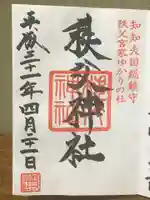 知知夫国総鎮守
秩父宮家ゆかりの社
秩父神社
平成三十一年四月二十一日